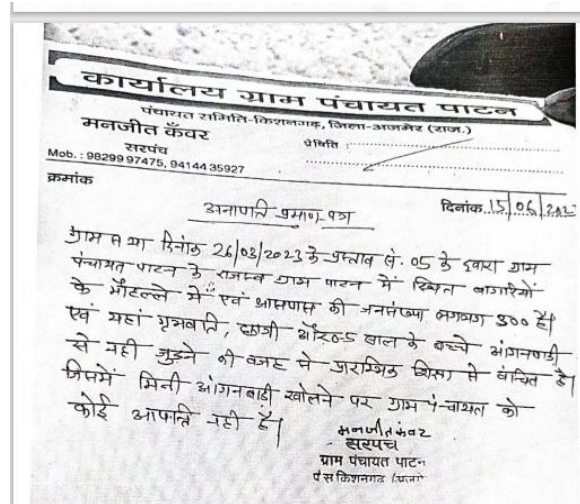 कार्यालय ग्राम पंचायत पाटन
पंचायत समिति-किशनगढ़, जिला-अजमेर (राज.)
मनजीत कँवर
सरपंच
प्रेषिति :
Mob. : 98299 97475, 94144 35927
क्रमांक
दिनांक 15/06/202
अनापति प्रमाण पत्र
ग्राम सभा दिनांक 26/03/2023 के प्रस्ताव सं. 05 के द्वारा ग्राम
पंचायत पाटन के राजस्व ग्राम पाटन में स्थित बागरियों
के मौहल्ले में एवं आसपास की जनसंख्या लगभग 300 है।
एवं यहां गृभवति, छात्री और 0-5 साल के बच्चे आंगनबाड़ी
से नही जुड़ने की वजह से प्रारम्भिक शिक्षा से वंचित है।
जिसमें मिनी आंगनबाडी खोलने पर ग्राम पंचायत को
कोई आपति नही है।
मनजीत कंवर
सरपंच
ग्राम पंचायत पाटन
पं स किशनगढ